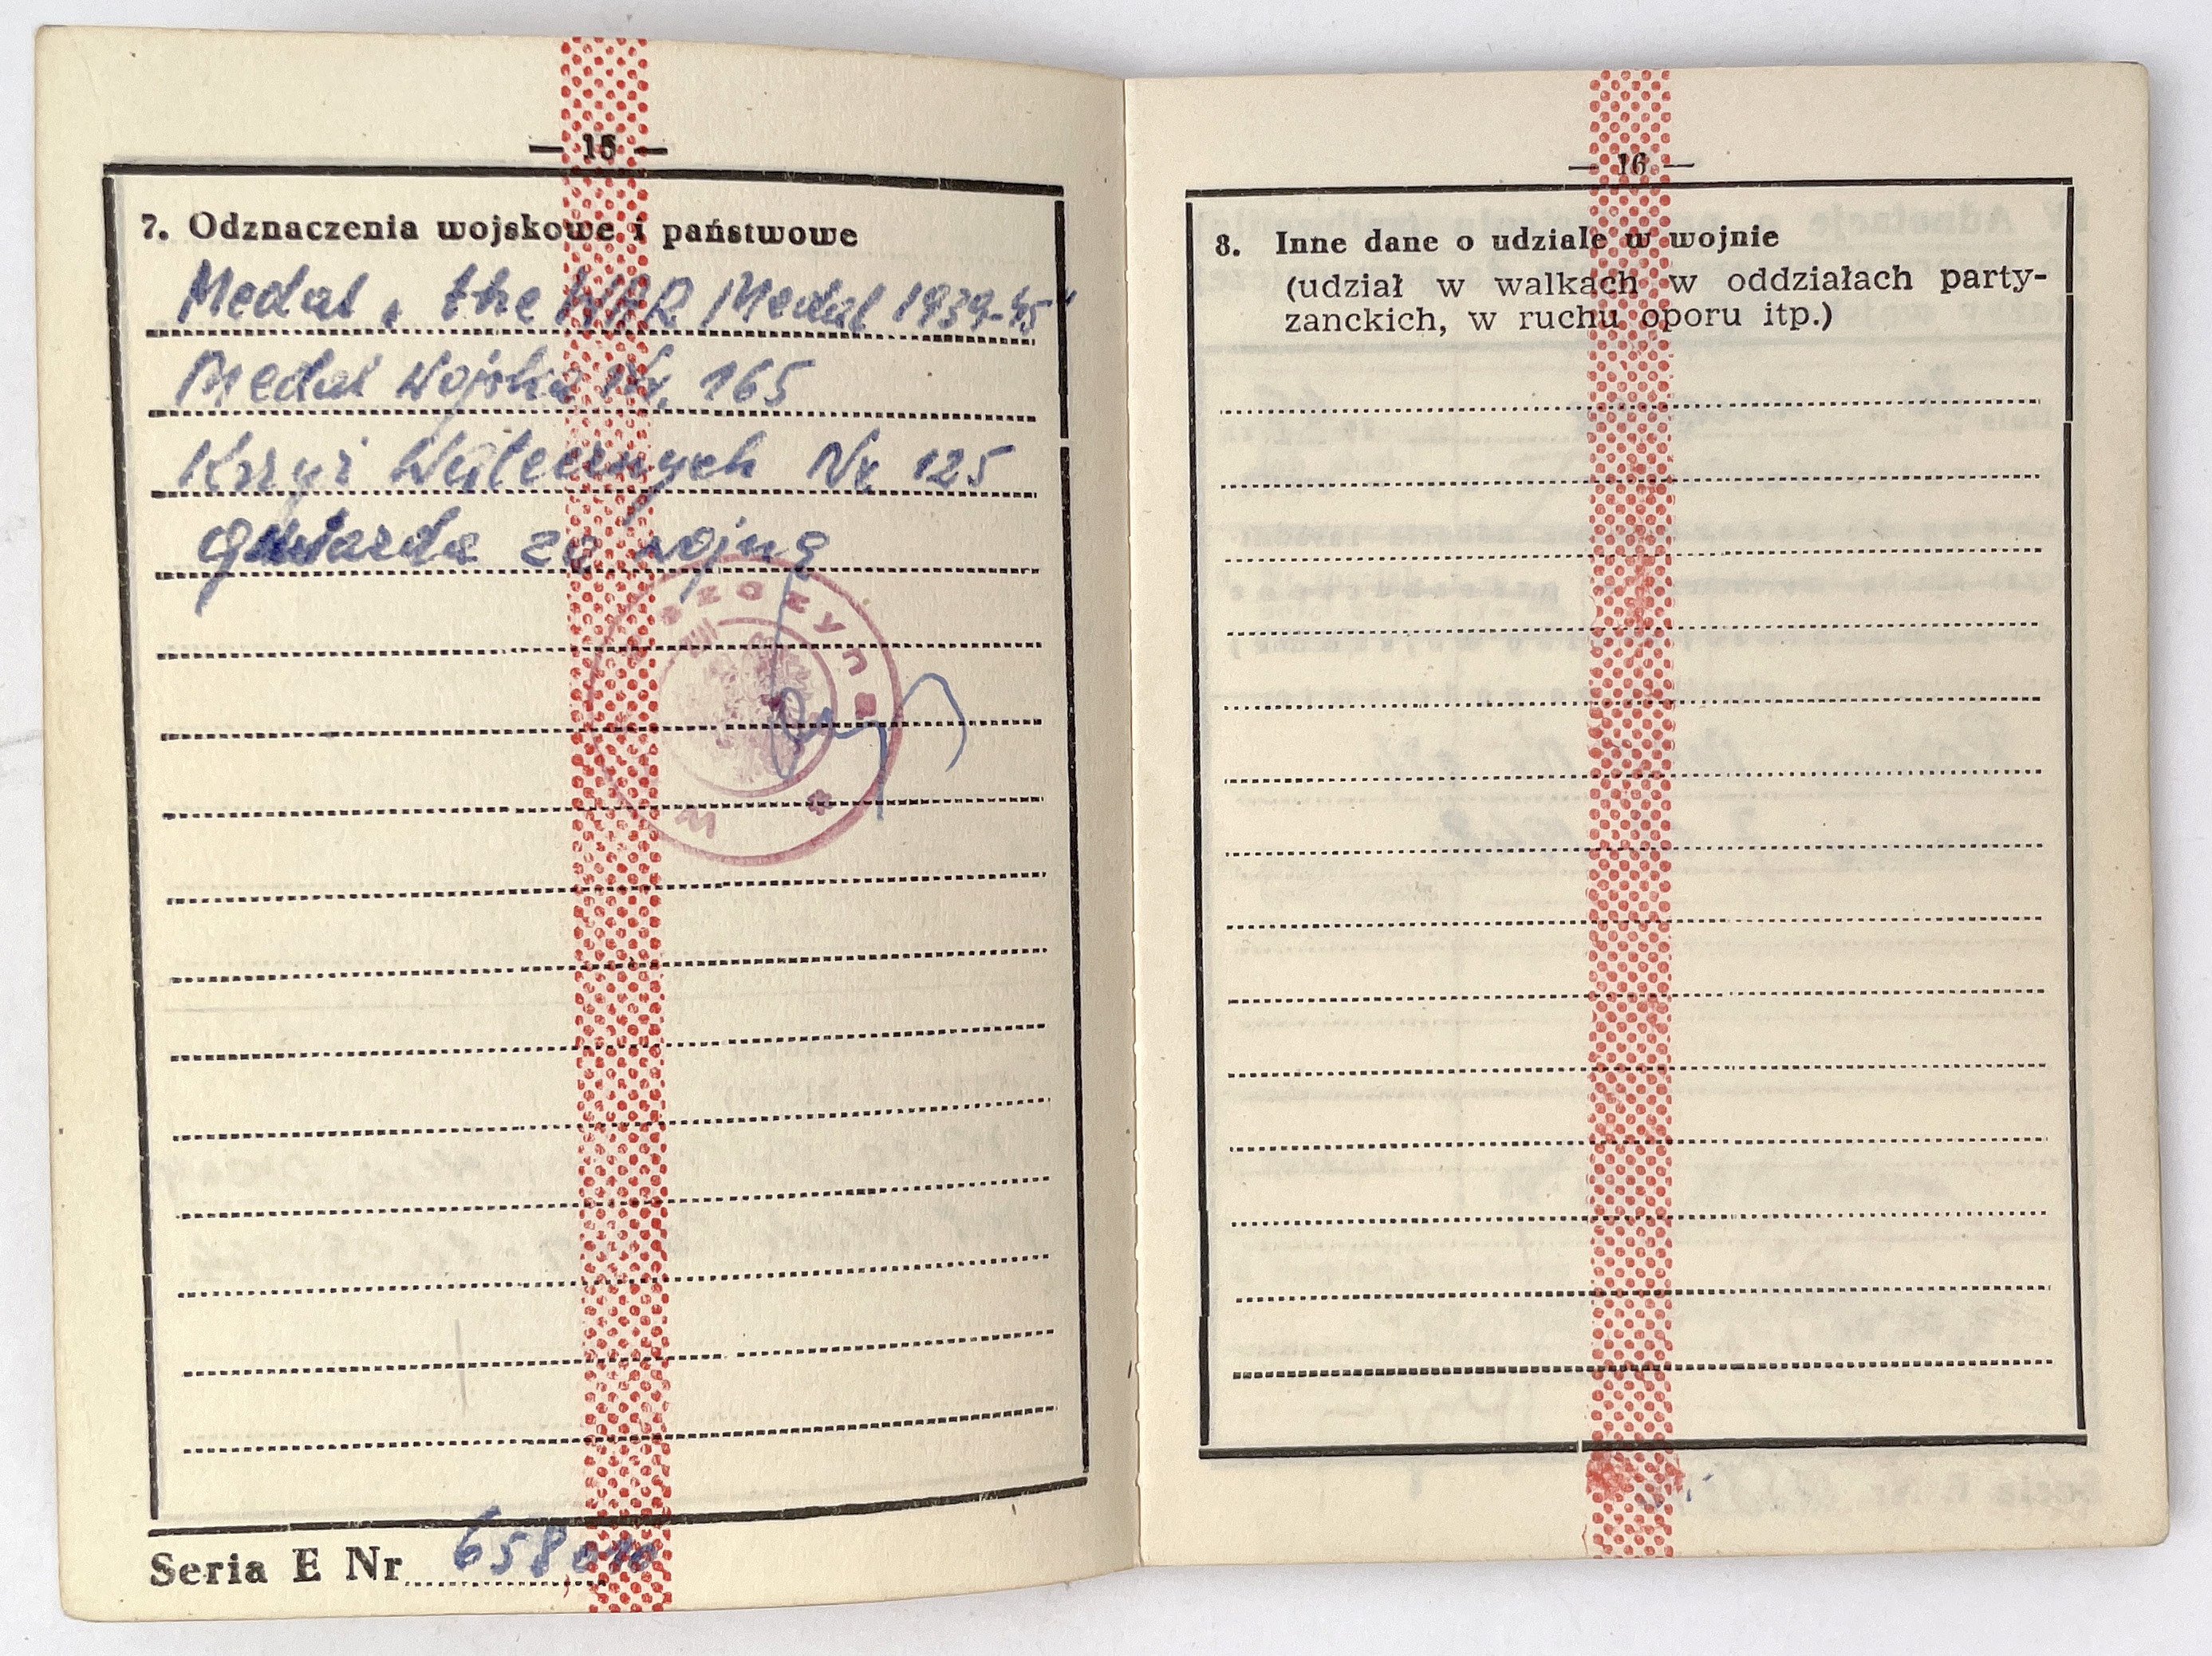 — 15 —
7. Odznaczenia wojskowe i państwowe
Medal „ the WAR Medal 1939-45"
Medal Wojska Nr. 165
Krzyż Walecznych Nr 125
gwiazda za wojnę
Seria E Nr 658010
— 16 —
8. Inne dane o udziale w wojnie
(udział w walkach w oddziałach party-
zanckich, w ruchu oporu itp.)